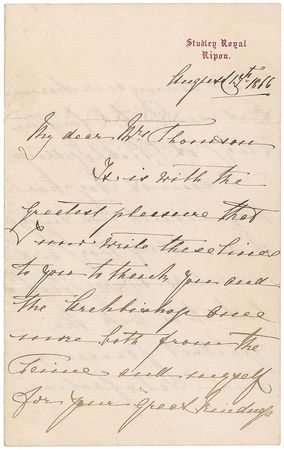 Studley Royal
Ripon.
August 1866
My dear Mrs Thomson
It is with the
greatest pleasure that
I now write these lines
to you to thank you and
the Archbishop once
more both from the
Prince and myself
for your great kindness